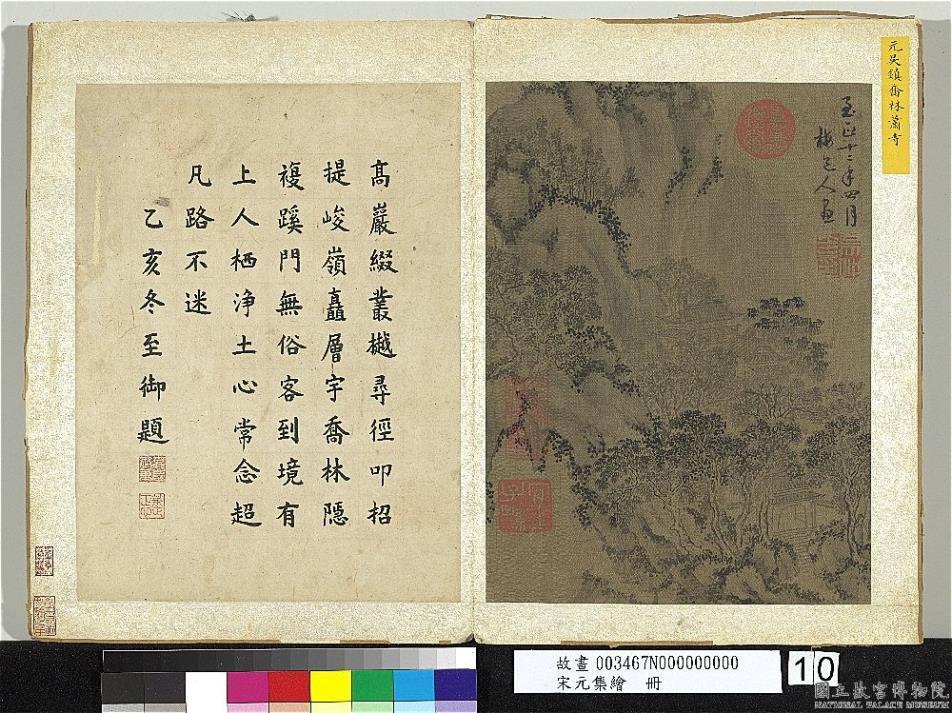 元吳鎮喬林蕭寺
至正十二年四月
梅道人畫
高巖綴叢樾尋徑叩招
提峻嶺矗層宇喬林隱
複蹊門無俗客到境有
上人栖淨土心常念超
凡路不迷
乙亥冬至御題
故畫 003467N000000000
宋元集繪 冊
10
國立故宮博物院
NATIONAL PALACE MUSEUM